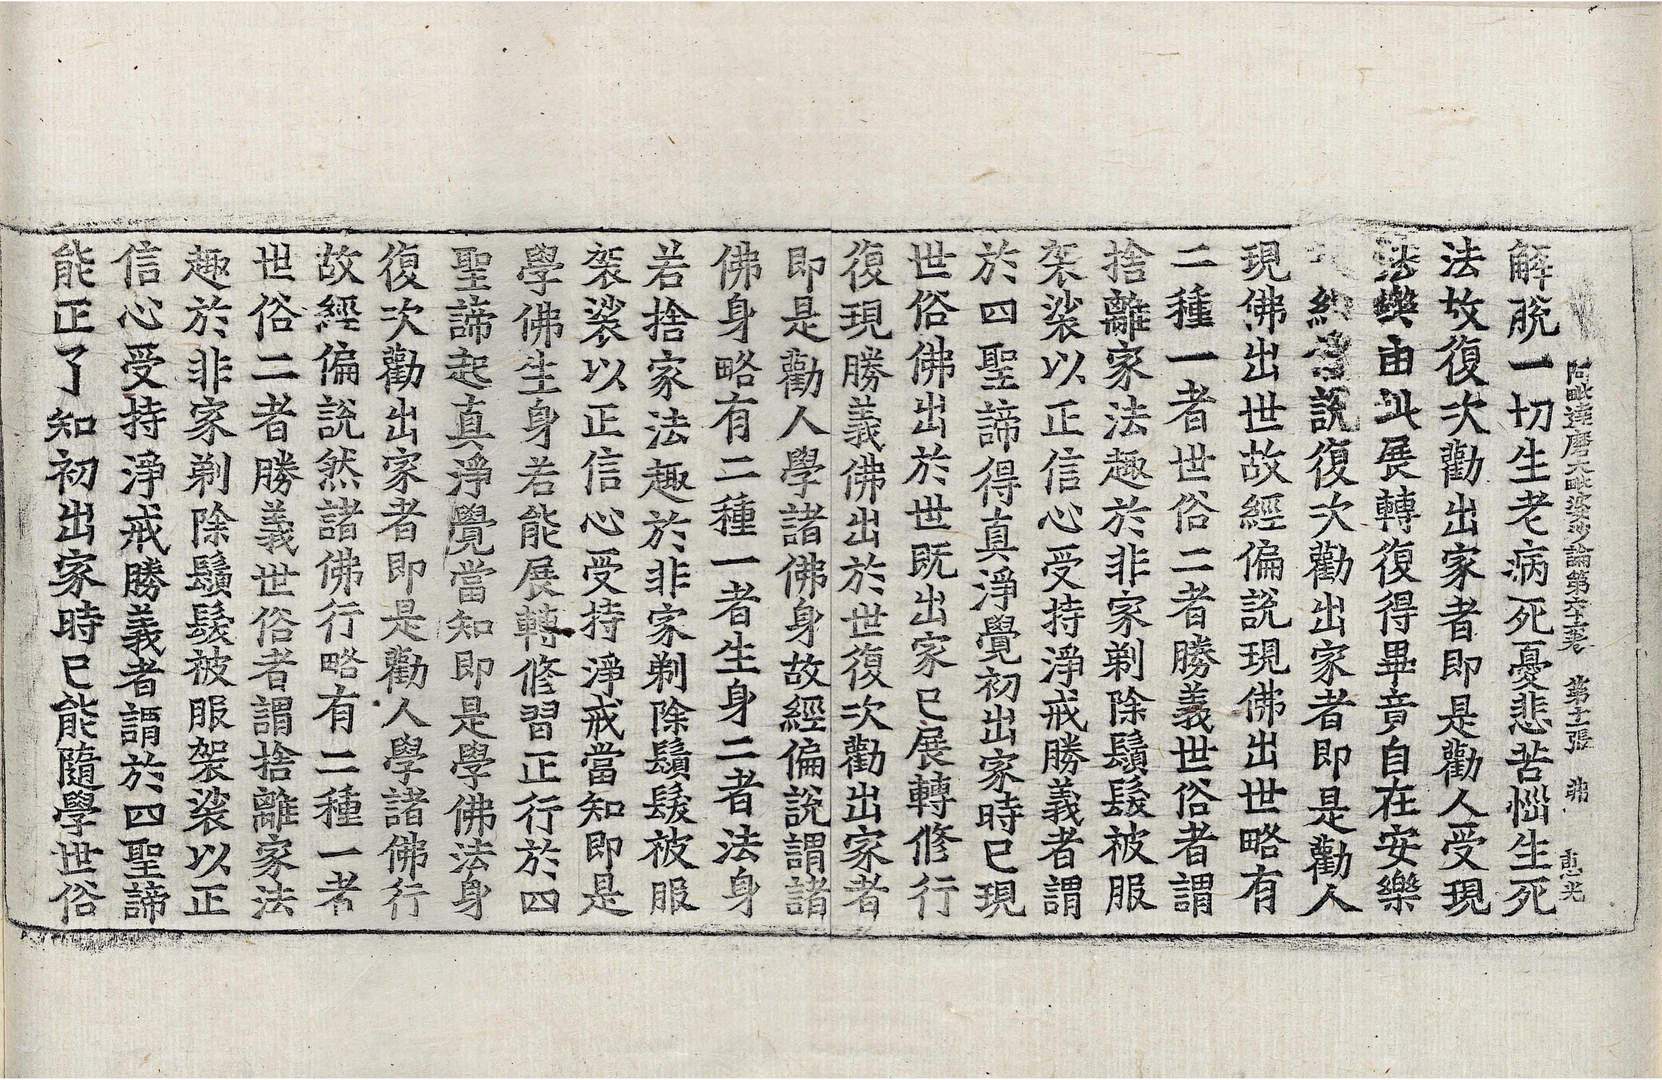 阿毗達磨大毗婆沙論第六十六卷　第十一張　弗　惠光
解脫一切生老病死憂悲苦惱生死
法故復次勸出家者即是勸人受現
法樂由此展轉復得畢竟自在安樂
故經說復次勸出家者即是勸人
現佛出世故經偏說現佛出世略有
二種一者世俗二者勝義世俗者謂
捨離家法趣於非家剃除鬚髮被服
袈裟以正信心受持淨戒勝義者謂
於四聖諦得真淨覺初出家時已現
世俗佛出於世既出家已展轉修行
復現勝義佛出於世復次勸出家者
即是勸人學諸佛身故經偏說謂諸
佛身略有二種一者生身二者法身
若捨家法趣於非家剃除鬚髮被服
袈裟以正信心受持淨戒當知即是
學佛生身若能展轉修習正行於四
聖諦起真淨覺當知即是學佛法身
復次勸出家者即是勸人學諸佛行
故經偏說然諸佛行略有二種一者
世俗二者勝義世俗者謂捨離家法
趣於非家剃除鬚髮被服袈裟以正
信心受持淨戒勝義者謂於四聖諦
能正了知初出家時已能隨學世俗